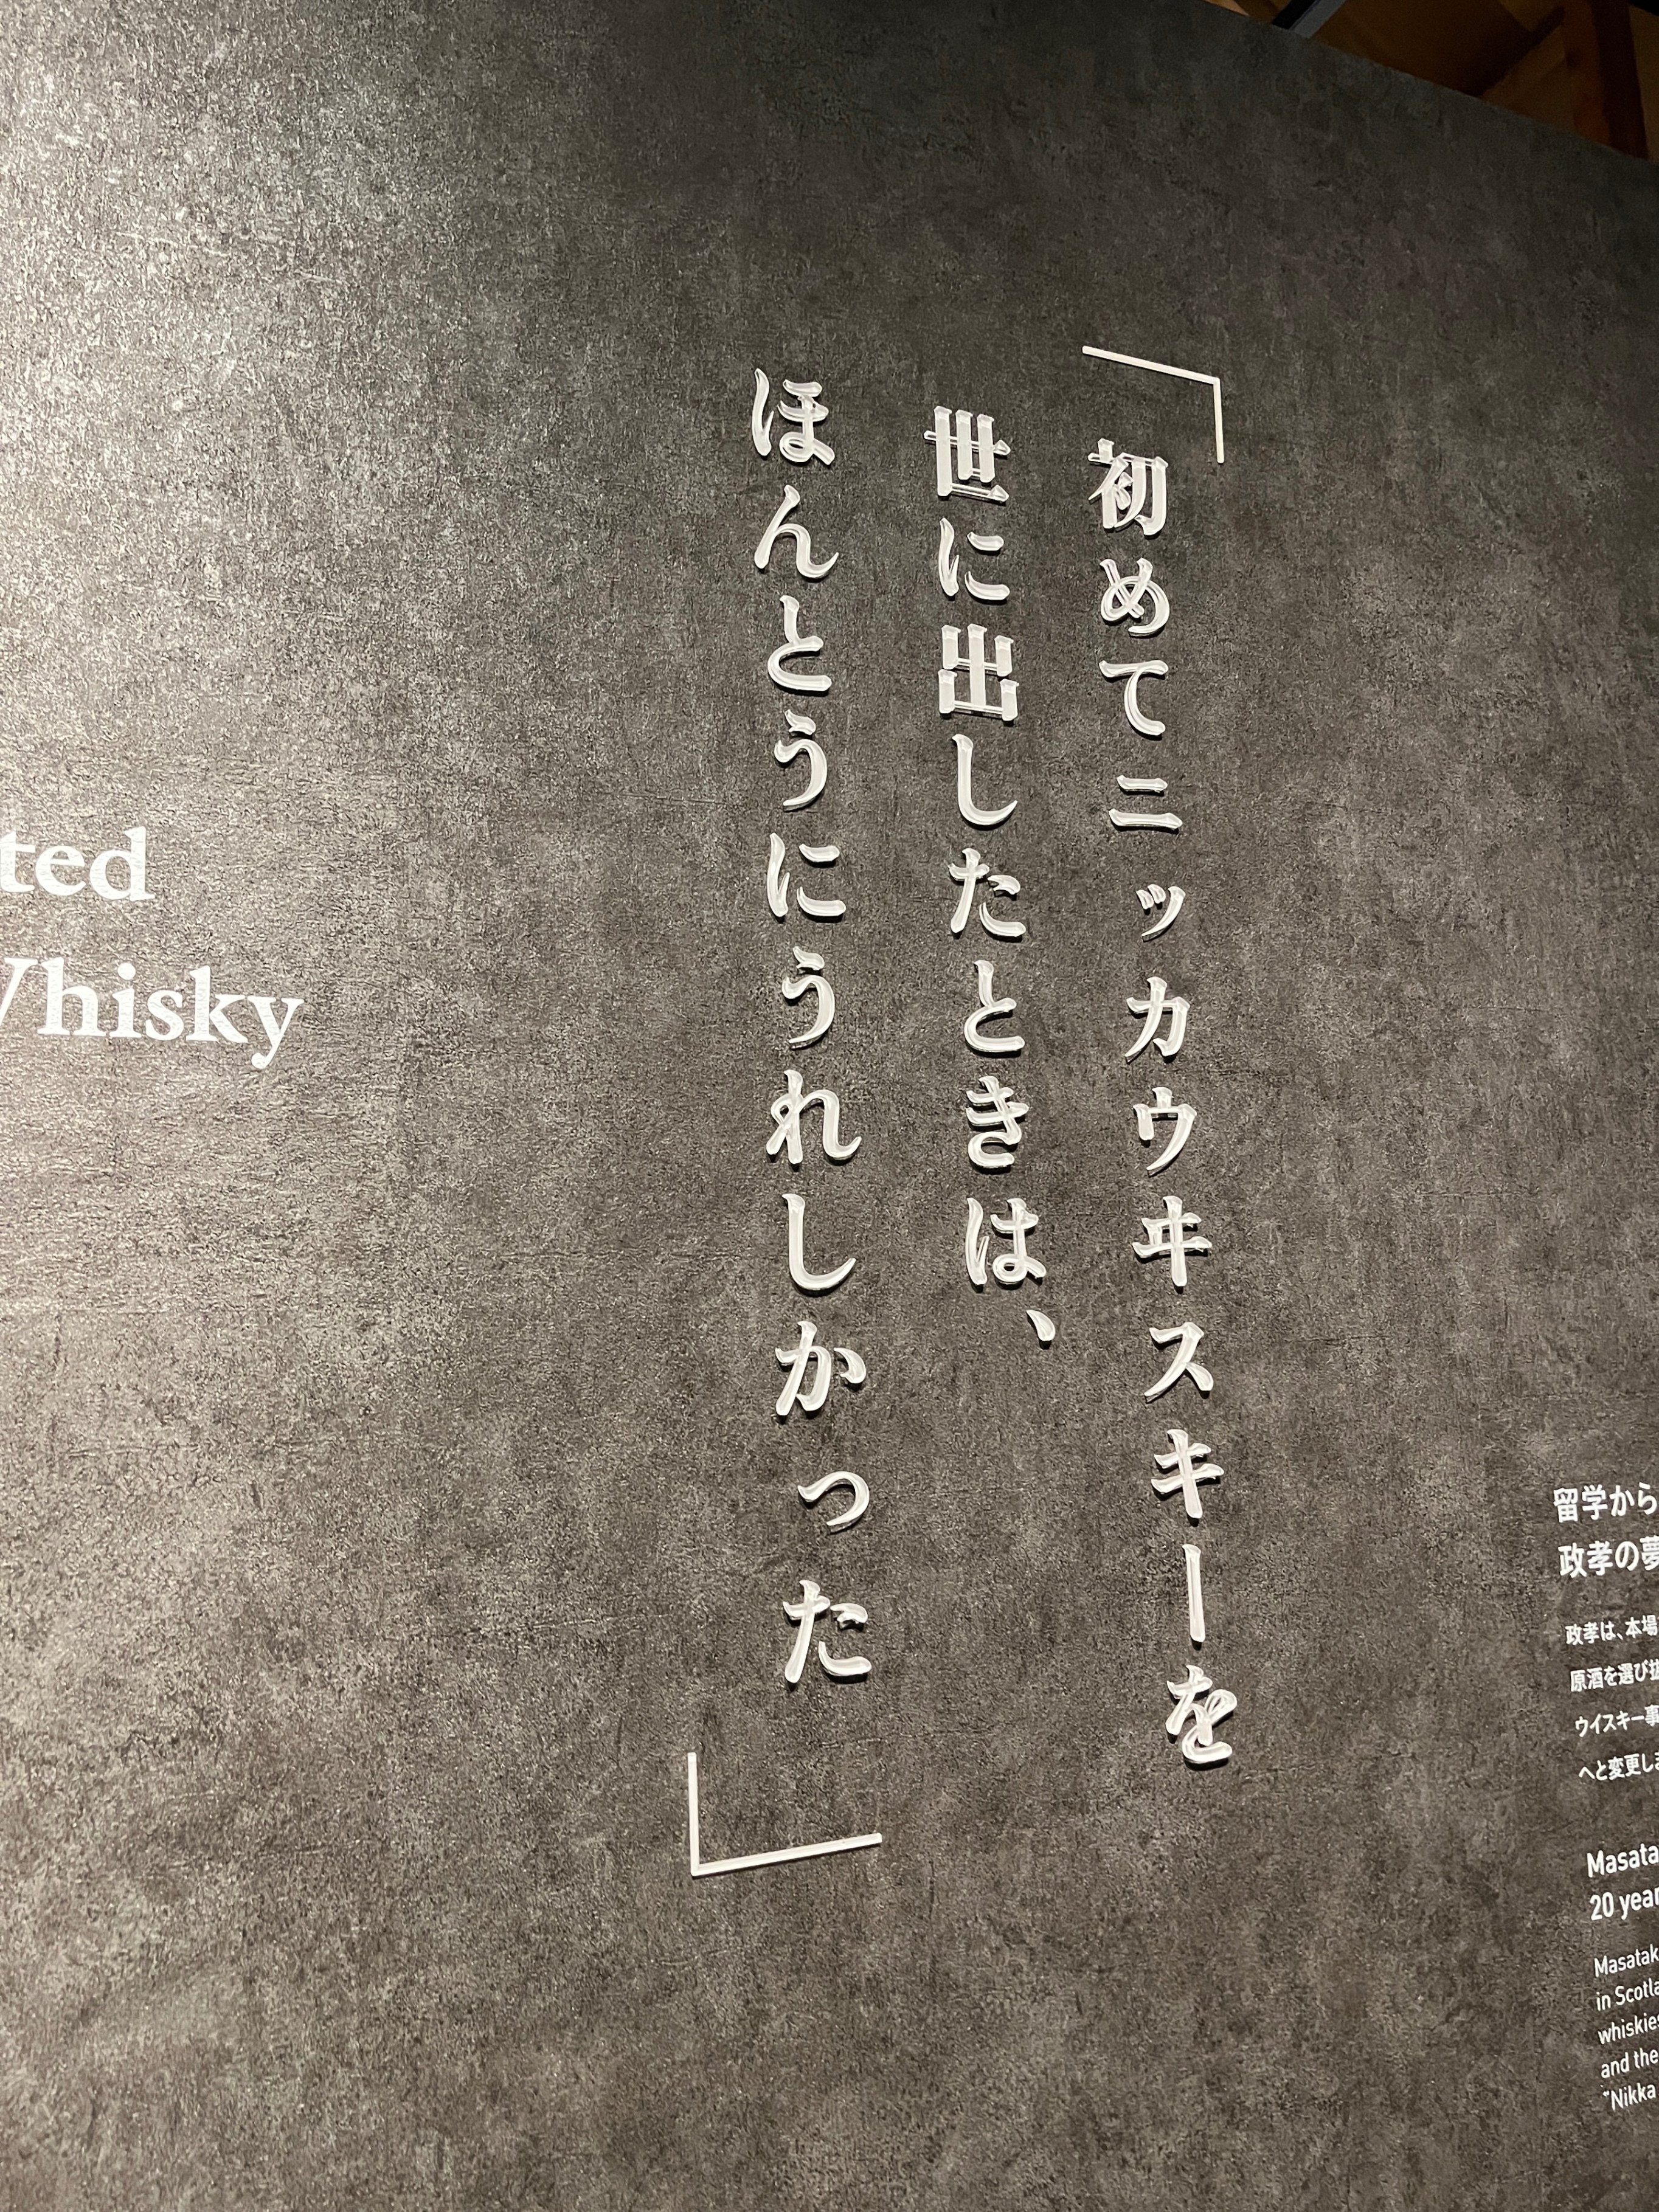 「初めてニッカウヰスキーを
世に出したときは、
ほんとうにうれしかった」
ted
Whisky
留学から
政孝の夢
政孝は、本場
原酒を選び抜
ウイスキー事
へと変更しま
Masata
20 year
Masatak
in Scotla
whiskies
and the
"Nikka